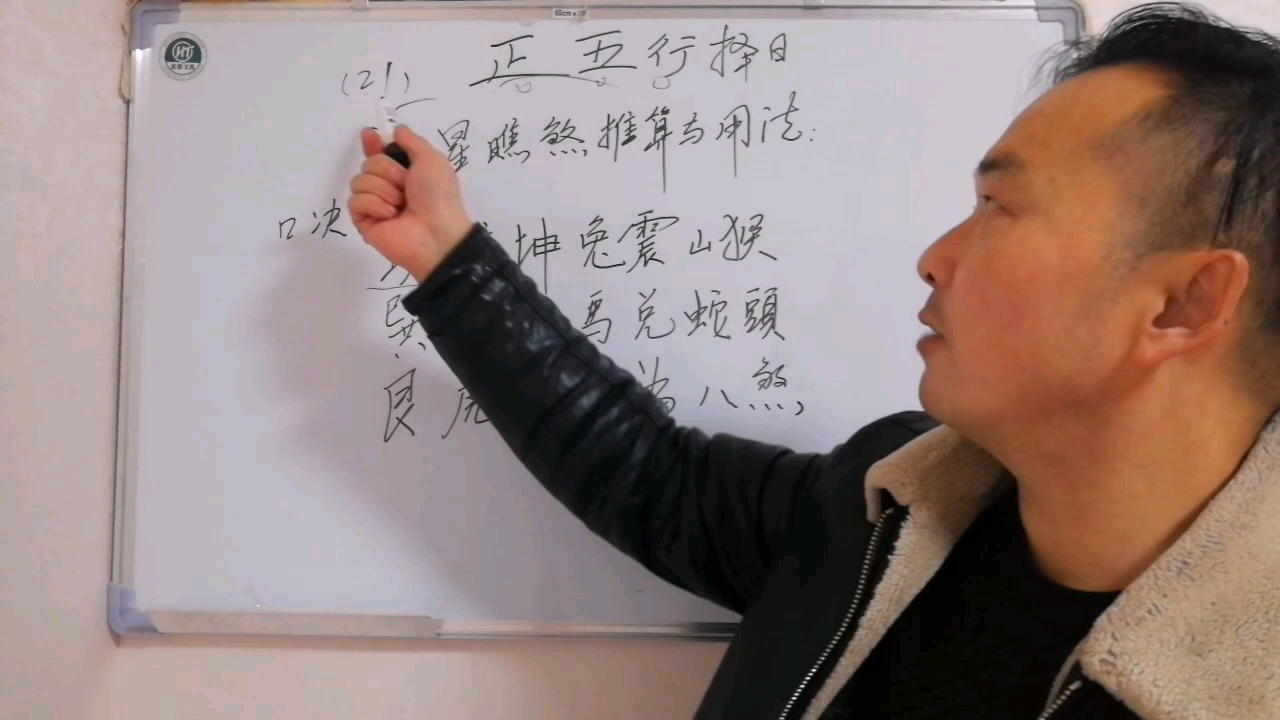 60cm
HT
正五行择日
(21)
星瞧煞推算与用法:
口决
坤兔震山猴
巽 馬兑蛇頭
艮虎 為八煞,